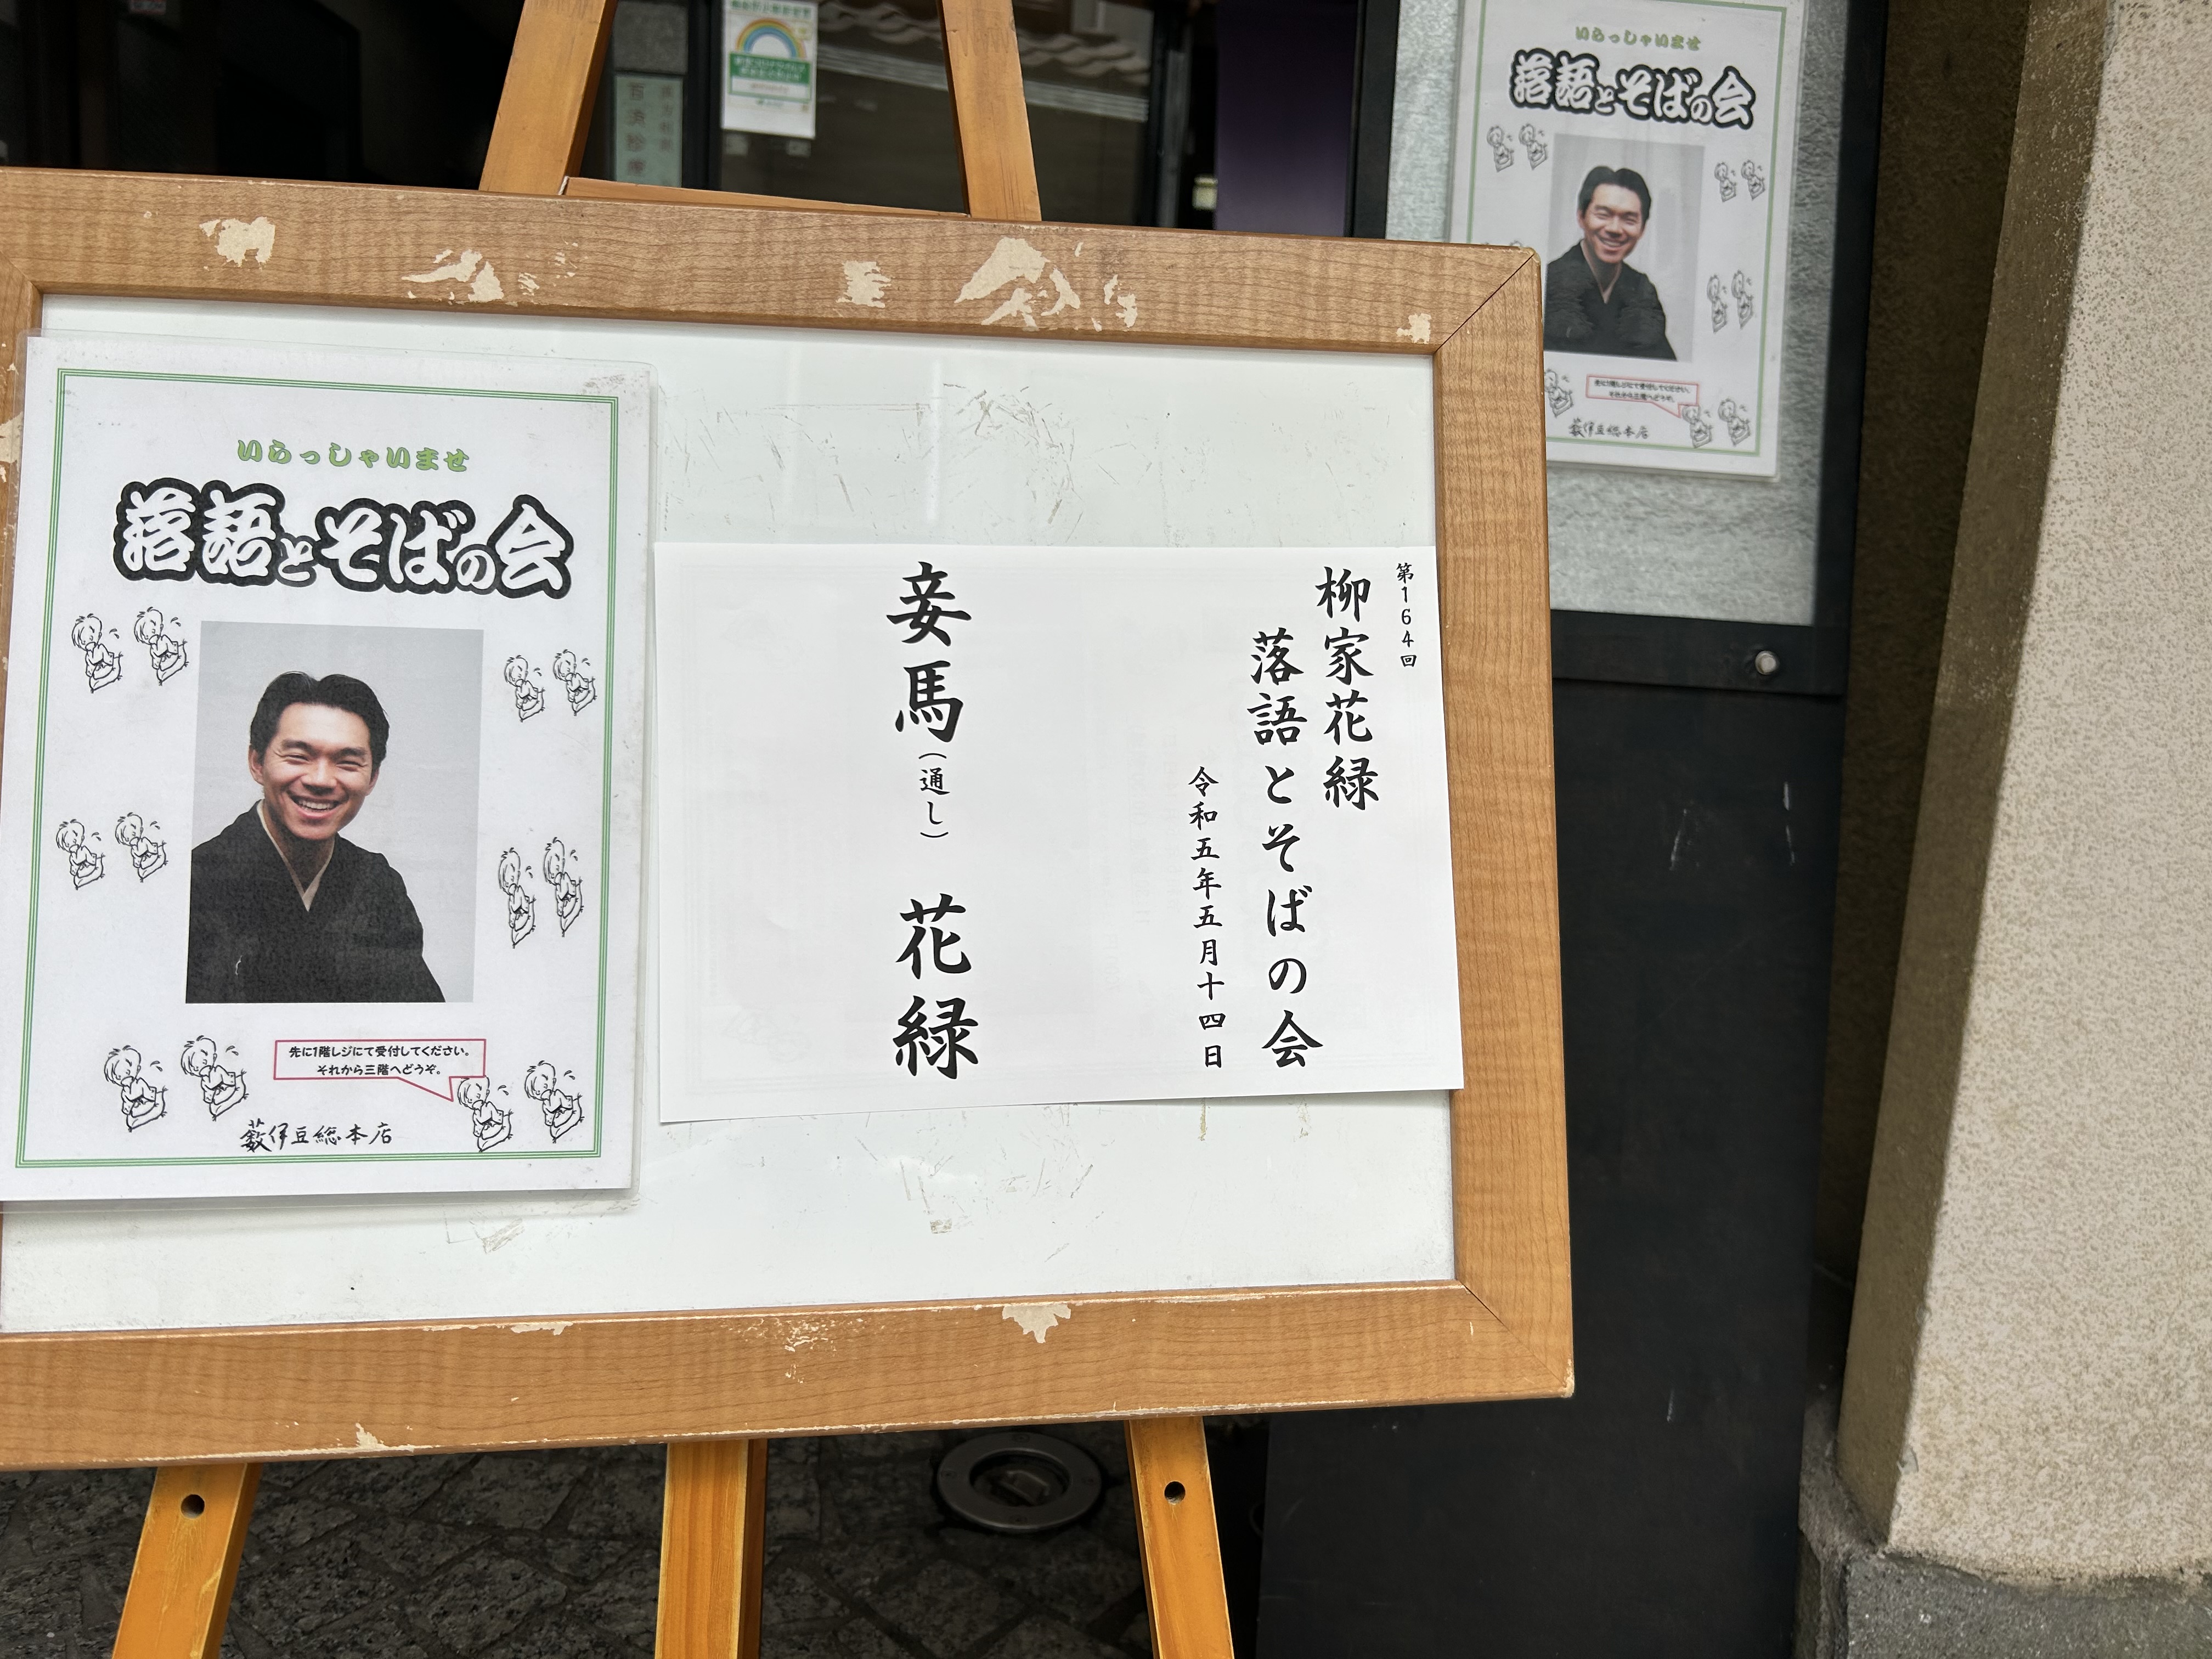 いらっしゃいませ
落語とそばの会
先に1階レジにて受付してください。
それから三階へどうぞ。
藪伊豆総本店
第164回
柳家花緑
落語とそばの会
令和五年五月十四日
妾馬(通し) 花緑
いらっしゃいませ
落語とそばの会
先に1階レジにて受付してください。
それから三階へどうぞ。
藪伊豆総本店